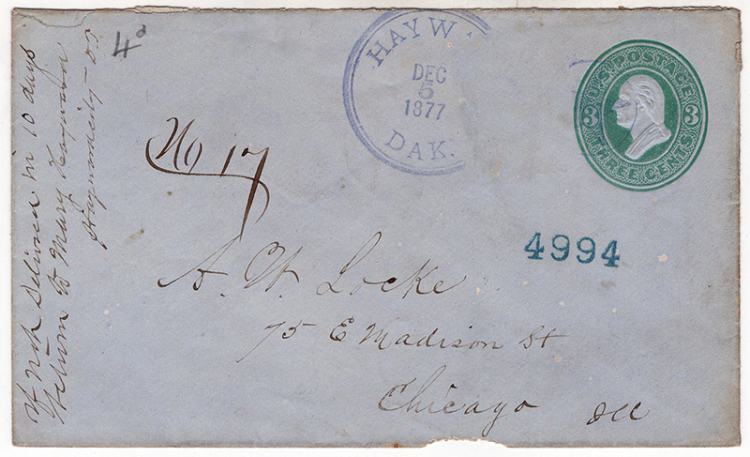 If not delivered in 10 days
Return to Mary
4
HAYW
DEC
5
1877
DAK.
U.S. POSTAGE
3 3
THREE CENTS
No 17
4994
A. W. Locke
75 E Madison St
Chicago Ill